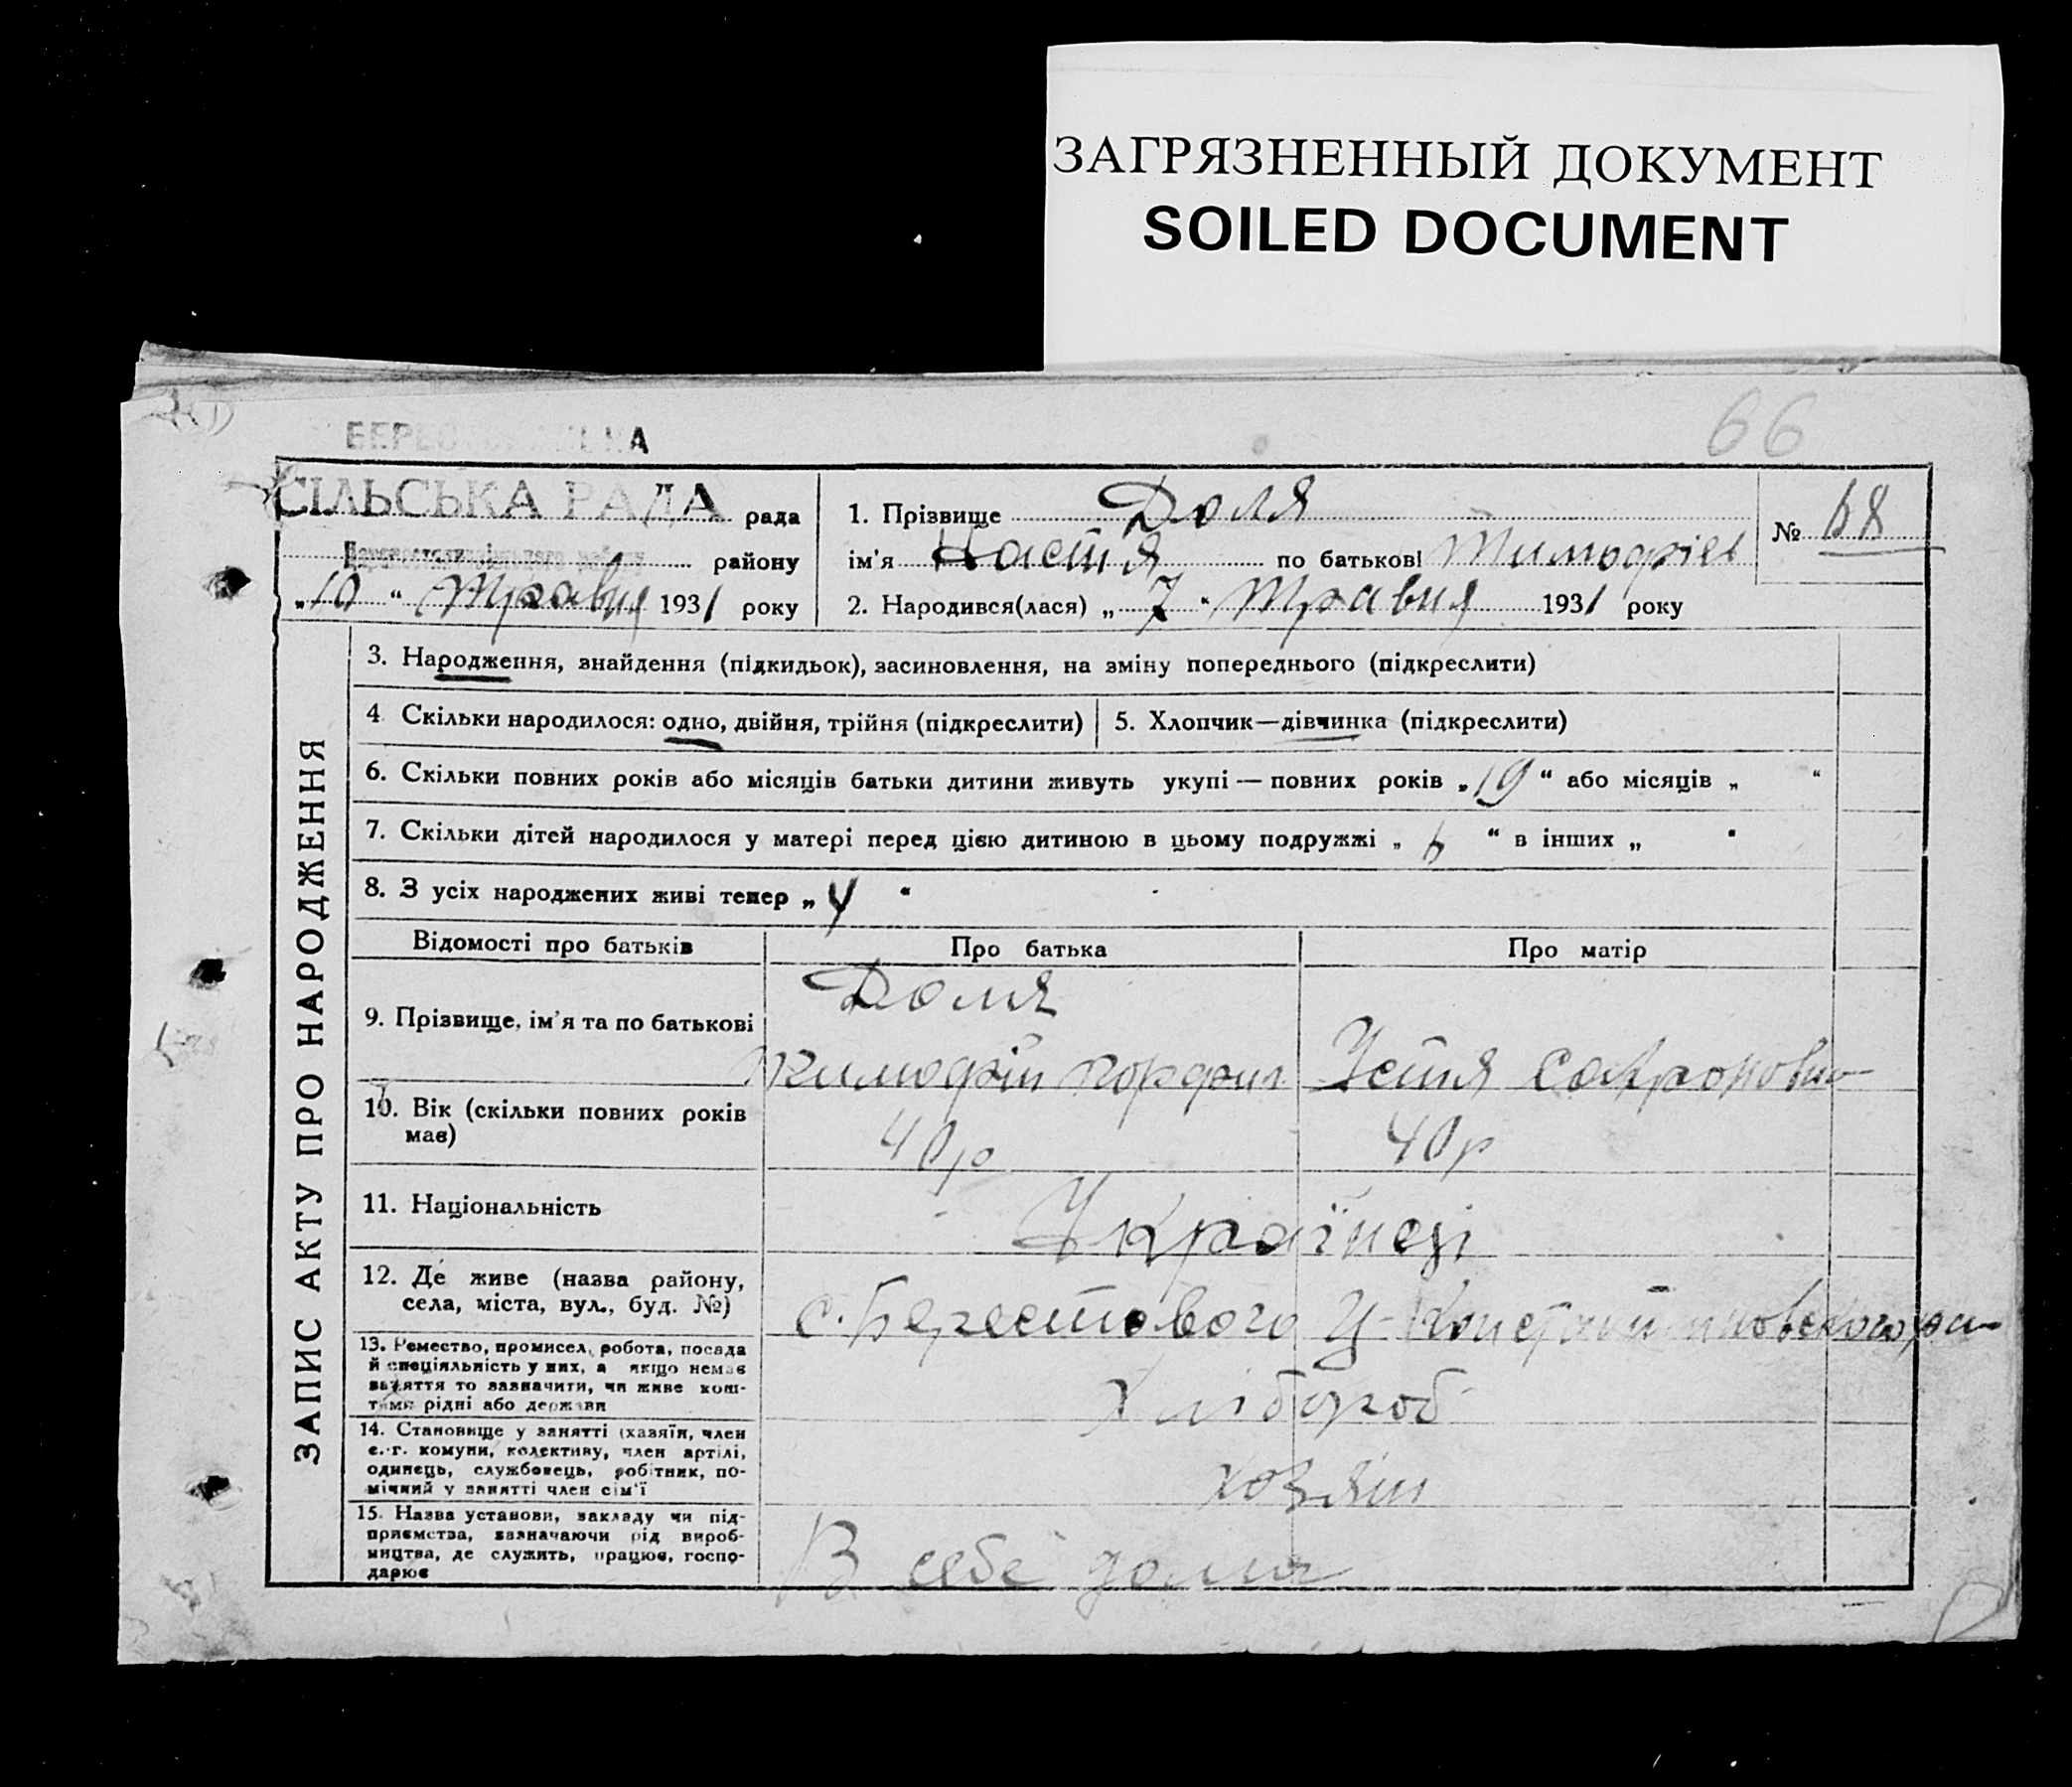 ЗАГРЯЗНЕННЫЙ ДОКУМЕНТ
SOILED DOCUMENT
66
СІЛЬСЬКА РАДА рада
району
„10“ Травня 1931 року
1. Прізвище Доля
ім'я Настя по батькові Тимофієв
№ 68
2. Народився(лася) „7“ Травня 1931 року
ЗАПИС АКТУ ПРО НАРОДЖЕННЯ
3. Народження, знайдення (підкидьок), засиновлення, на зміну попереднього (підкреслити)
4. Скільки народилося: одно, двійня, трійня (підкреслити) 5. Хлопчик—дівчинка (підкреслити)
6. Скільки повних років або місяців батьки дитини живуть укупі — повних років „19“ або місяців „ “
7. Скільки дітей народилося у матері перед цією дитиною в цьому подружжі „6“ в інших „ “
8. З усіх народжених живі тепер „4“
Відомості про батьків Про батька Про матір
9. Прізвище, ім'я та по батькові
Доля
Устя
10. Вік (скільки повних років має)
40р 40р
11. Національність
Українці
12. Де живе (назва району, села, міста, вул., буд. №)
с. Берестового
13. Ремество, промисел, робота, посада
й спеціяльність у них, а якщо немає
заняття то зазначити, чи живе кош-
тами рідні або держави
Хлібороб
14. Становище у занятті (хазяїн, член
с.-г. комуни, колективу, член артілі,
одинець, службовець, робітник, по-
мічний у занятті член сім'ї
хозяїн
15. Назва установи, закладу чи під-
приємства, зазначаючи рід вироб-
ництва, де служить, працює, госпо-
дарює
В себе дома